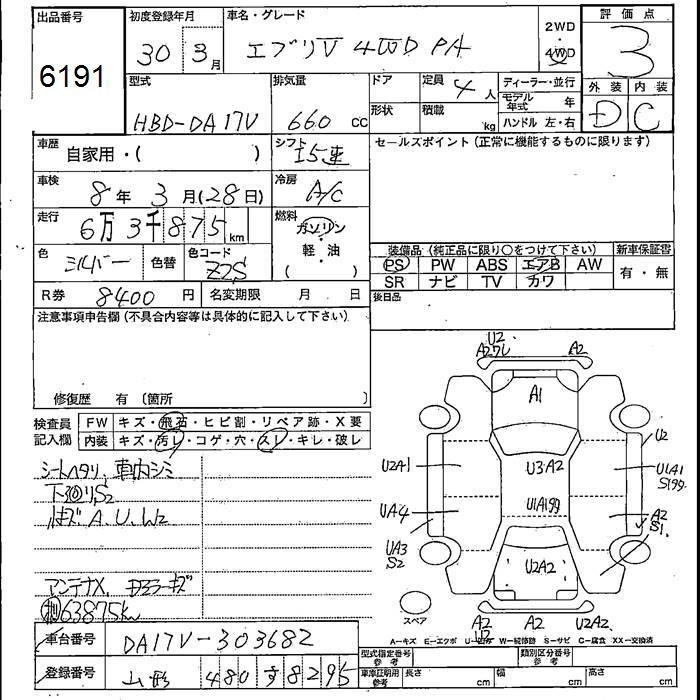 出品番号
6191
初度登録年月
30年3月
車名・グレード
エブリV 4WD PA
2WD
・
4WD
評価点
3
外装 内装
D C
型式
HBD-DA17V
排気量
660 cc
ドア
形状
定員 4人
積載 kg
ディーラー・並行
モデル年式 年
ハンドル 左・右
車歴 自家用・( )
シフト I5速
セールスポイント (正常に機能するものに限ります)
車検 8年 3月(28日)
冷房 A/C
走行 6万3千875km
燃料 ガソリン・軽・油 ( )
色 シルバー 色替
色コード Z2S
装備品 (純正品に限り○をつけて下さい)
新車保証書
PS PW ABS エアB AW
SR ナビ TV カワ
有・無
R券 8400円
名変期限 月 日
後日品
注意事項申告欄 (不具合内容等は具体的に記入して下さい)
修復歴 有 (箇所 )
検査員記入欄
FW キズ・飛石・ヒビ割・リペア跡・X要
内装 キズ・汚レ・コゲ・穴・スレ・キレ・破レ
シートヘタリ、車内シミ
下回リS2
A.U.W2
アンテナX
63875km
車台番号 DA17V-303682
登録番号 山形 480 す 8295
U2
A2ワレ
A2
A1
U2
U2A1
U3・A2
U1A1
S199
UA4
U1A199
A2
S1
UA3
S2
U2A2
スペア
A2
U2
A2
U2A2
A-キズ E-エクボ U-凹み W-補修跡 S-サビ C-腐食 XX-交換済
型式指定番号 参考
類別区分番号 参考
車庫証明用 参考
長さ cm
幅 cm
高さ cm